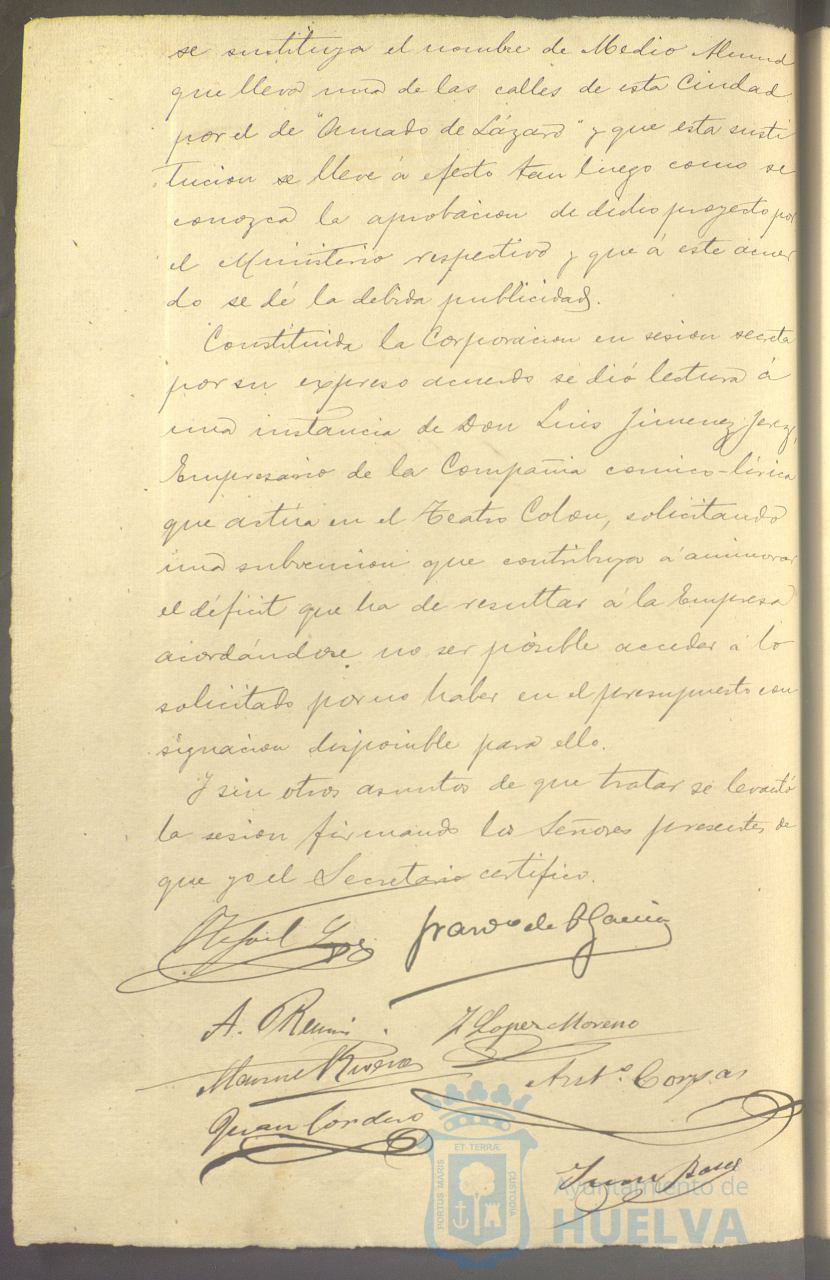 se sustituya el nombre de Medio Almud
que lleva una de las calles de esta Ciudad
por el de "Amado de Lázaro" y que esta susti
tucion se lleve á efecto tan luego como se
conozca la aprobacion de dicho proyecto por
el Ministerio respectivo y que á este acuer
do se dé la debida publicidad.
Constituida la Corporacion en sesion secreta
por su expreso acuerdo se dió lectura á
una instancia de Don Luis Jimenez
Empresario de la Compañia comico-lírica
que actúa en el Teatro Colon, solicitando
una subvencion que contribuya á aminorar
el déficit que ha de resultar á la Empresa
acordándose no ser posible acceder á lo
solicitado por no haber en el presupuesto con
signacion disponible para ello.
Y sin otros asuntos de que tratar se levantó
la sesion firmando los Señores presentes de
que yo el Secretario certifico.
de P Garcia
A. J Lopez Moreno
Manuel Rivera
Antº Corpas
Juan Cordero
Juan
PORTUS MARIS
ET TERRÆ
CUSTODIA
Ayuntamiento de
HUELVA